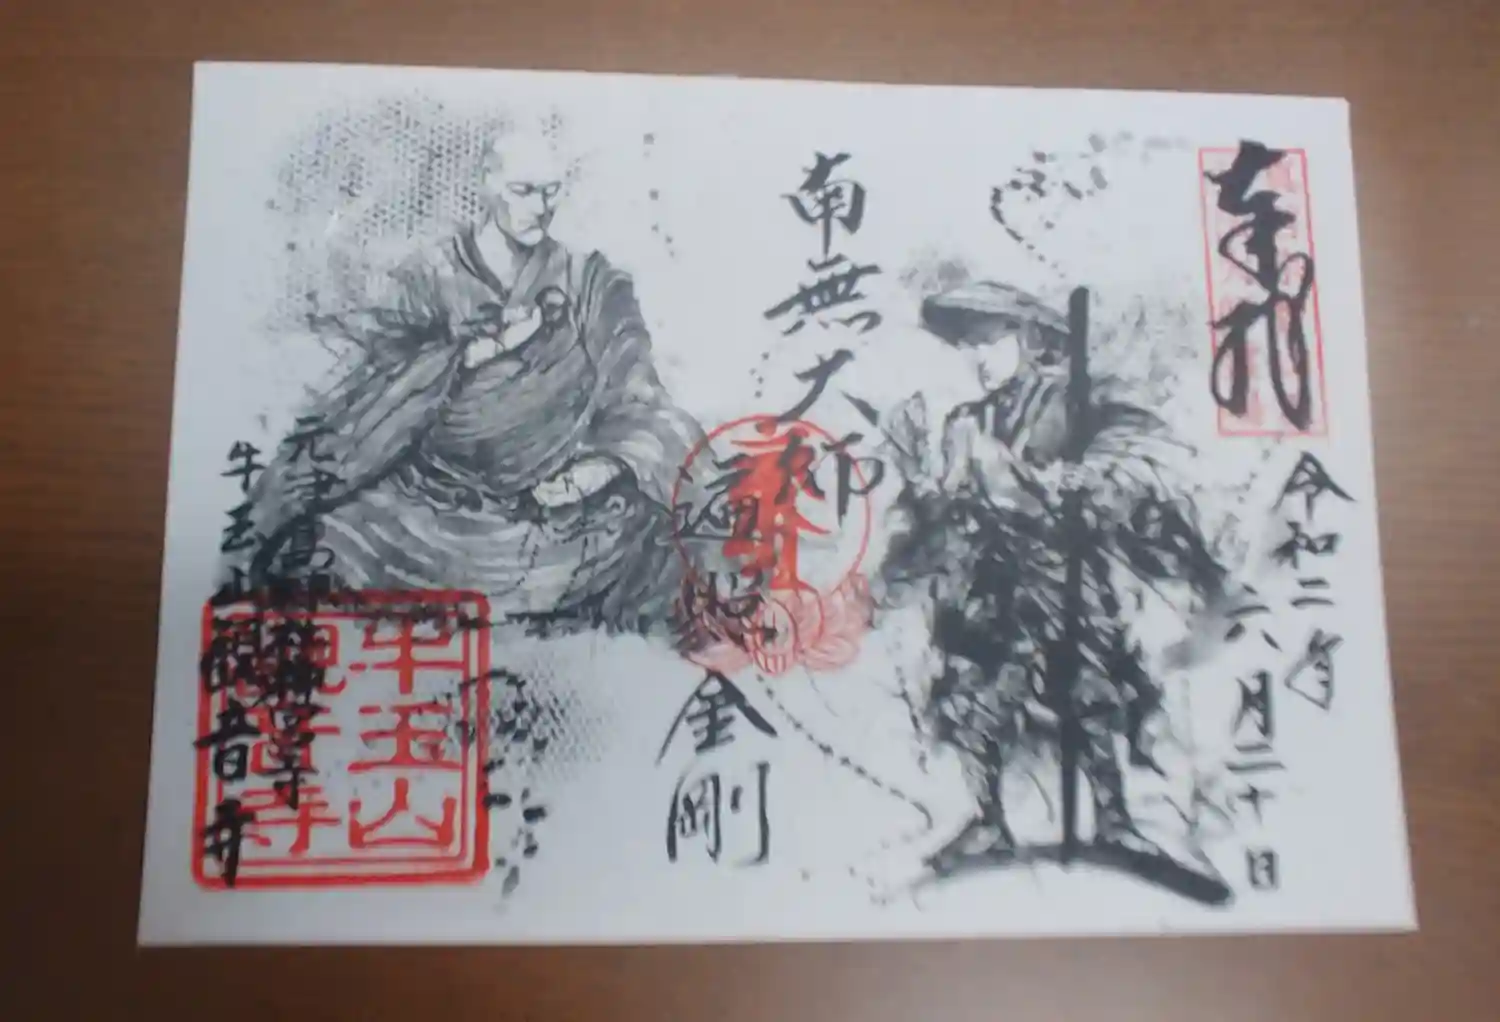 奉拝
令和二年
六月二十日
南無大師
遍照
金剛
元津島 神宮寺
牛玉山観音寺
牛玉山
観音寺